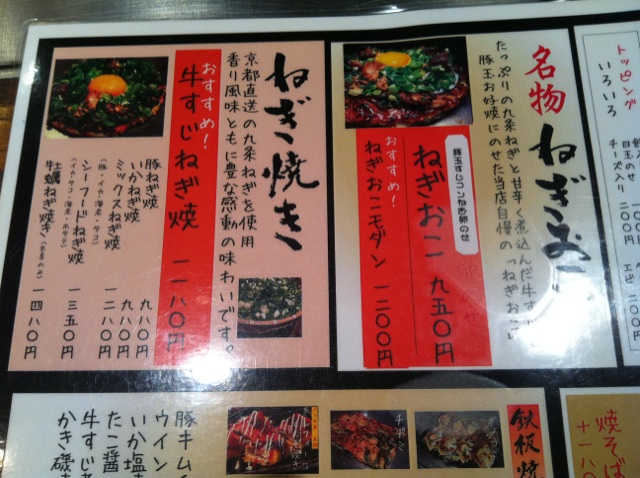 トッピング
いろいろ
目玉のせ
チーズ入り
二〇〇円
名物 ねぎおこ
たっぷりの九条ねぎと甘辛く煮込んだ牛す
豚玉お好焼にのせた当店自慢の「ねぎおこ」
豚玉すじコンねぎ卵のせ
ねぎおこ 九五〇円
おすすめ!
ねぎおこモダン 一二〇〇円
ねぎ焼き
京都直送の九条ねぎを使用
香り風味ともに豊な感動の味わいです。
おすすめ!
牛すじねぎ焼 一一八〇円
豚ねぎ焼 九八〇円
いかねぎ焼 九八〇円
ミックスねぎ焼 一二八〇円
(豚・イカ・海老・タコ)
シーフードねぎ焼 一三五〇円
(イカ・タコ・海老・ホタテ)
牡蠣ねぎ焼き(冬季のみ) 一四八〇円
焼そば
鉄板焼
豚キム
ウイン
いか塩
たこ醤
牛すじ
かき磯